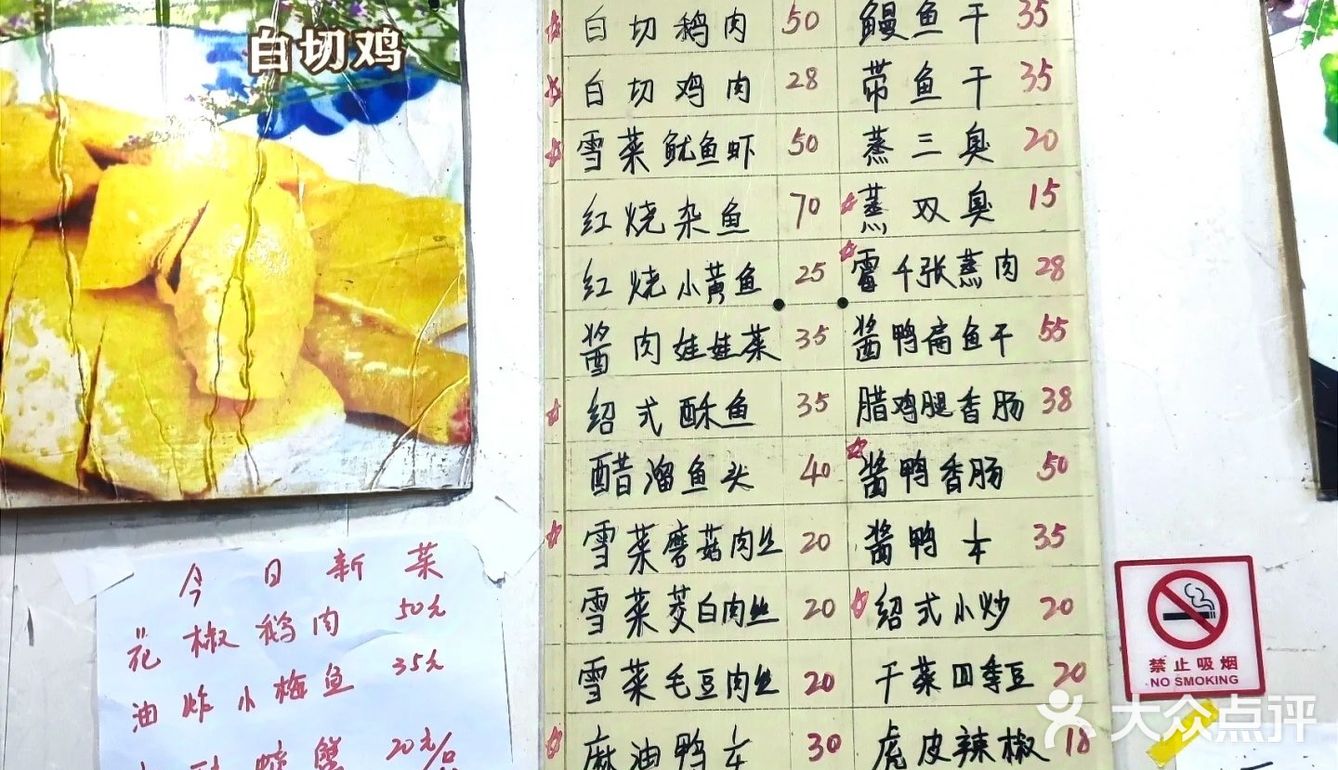 白切鸡
白切鹅肉 50 鳗鱼干 35
白切鸡肉 28 带鱼干 35
雪菜鱿鱼虾 50 蒸三臭 20
红烧杂鱼 70 蒸双臭 15
红烧小黄鱼 25 霉千张蒸肉 28
酱肉娃娃菜 35 酱鸭扁鱼干 55
绍式酥鱼 35 腊鸡腿香肠 38
醋溜鱼头 40 酱鸭香肠 50
雪菜蘑菇肉丝 20 酱鸭 35
雪菜茭白肉丝 20 绍式小炒 20
雪菜毛豆肉丝 20 干菜四季豆 20
麻油鸭 30 虎皮辣椒 18
今日新菜
花椒鹅肉 50元
油炸小梅鱼 35元
蟹 20元/
禁止吸烟
NO SMOKING
大众点评